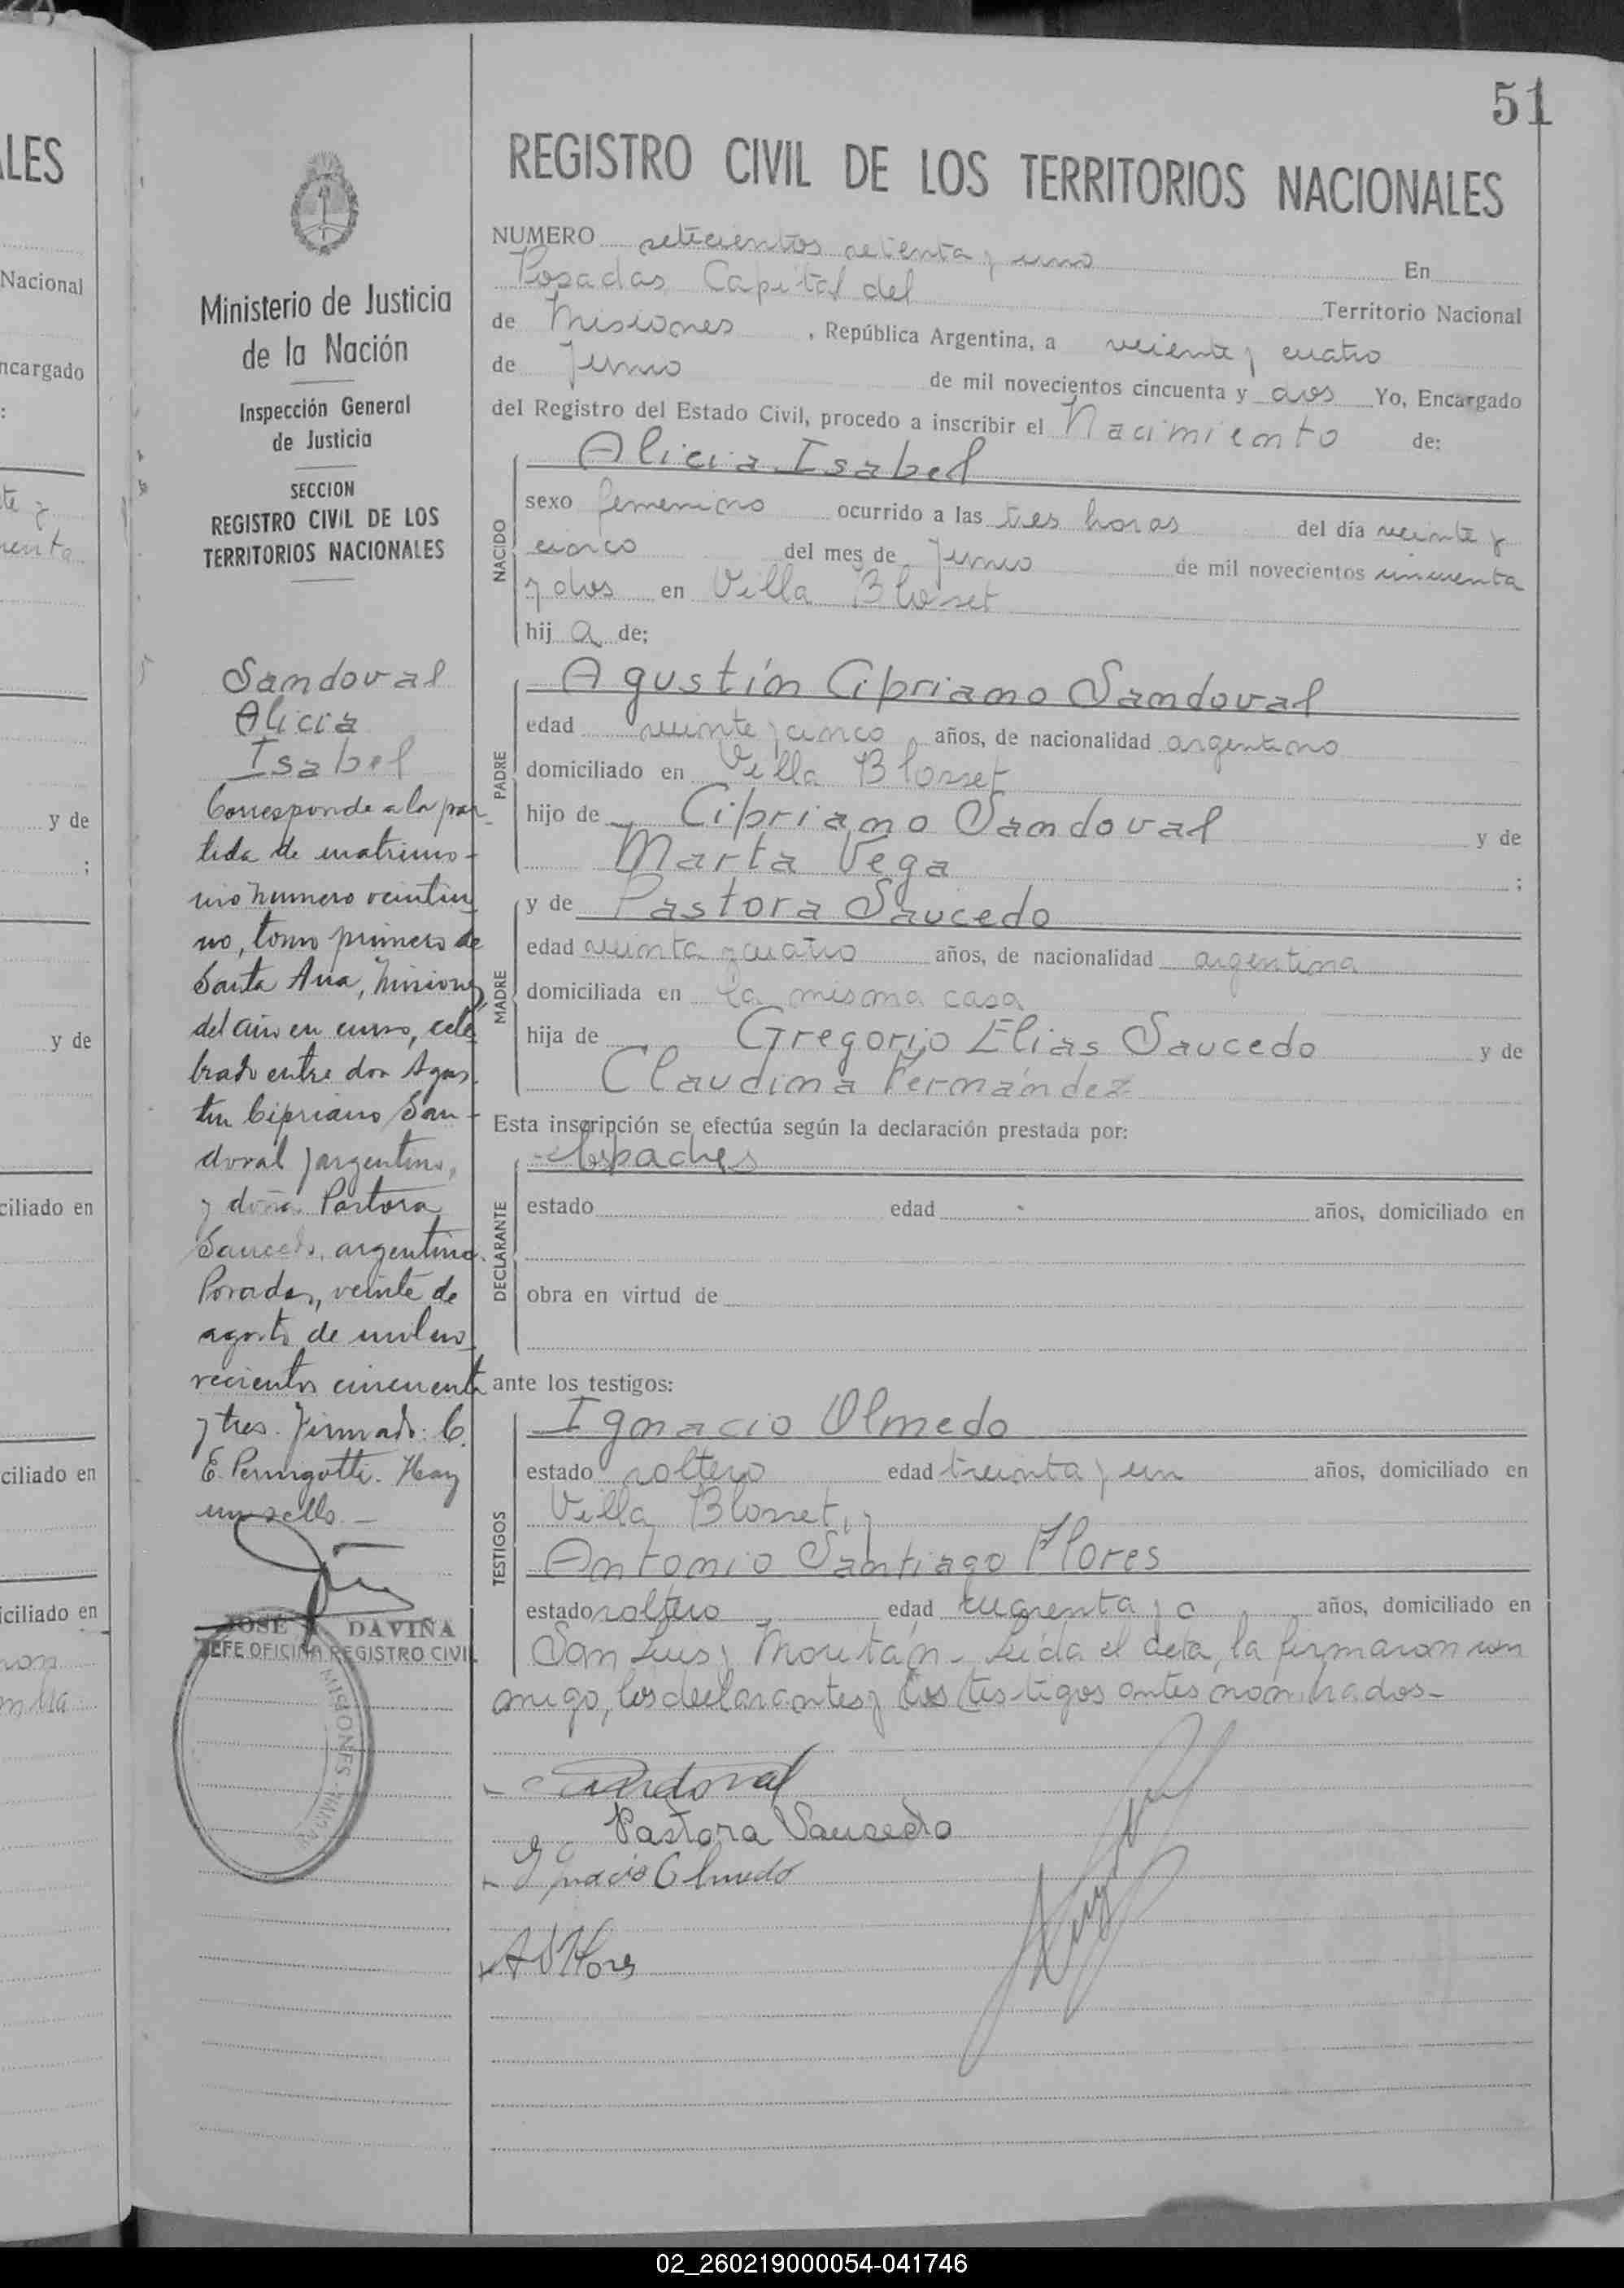 LES
Nacional
ncargado
:
te y
enta
y de
;
y de
ciliado en
ciliado en
iciliado en
51
REGISTRO CIVIL DE LOS TERRITORIOS NACIONALES
Ministerio de Justicia
de la Nación
Inspección General
de Justicia
SECCION
REGISTRO CIVIL DE LOS
TERRITORIOS NACIONALES
Sandoval
Alicia
Isabel
Corresponde a la par-
tida de matrimo-
nio numero veintiu
no, tomo primero de
Santa Ana, Misiones
del año en curso, cele
brado entre don Agus
tin Cipriano San-
doval, argentino,
y doña Pastora
Saucedo, argentina.
Posadas, veinte de
agosto de mil no
vecientos cincuenta
y tres. Firmado: C.
E. Perugotti. Hay
un sello.-
JOSÉ DAVIÑA
JEFE OFICINA REGISTRO CIVIL
MISIONES
NUMERO setecientos setenta y uno En
Posadas Capital del Territorio Nacional
de Misiones, República Argentina, a veinte y cuatro
de Junio de mil novecientos cincuenta y dos Yo, Encargado
del Registro del Estado Civil, procedo a inscribir el Nacimiento de:
NACIDO
Alicia Isabel
sexo femenino ocurrido a las tres horas del día veinte y
cinco del mes de Junio de mil novecientos cincuenta
y dos en Villa Blosset
hija de;
PADRE
Agustín Cipriano Sandoval
edad veinte y cinco años, de nacionalidad argentino
domiciliado en Villa Blosset
hijo de Cipriano Sandoval y de
Marta Vega ;
MADRE
y de Pastora Saucedo
edad veinta y cuatro años, de nacionalidad argentina
domiciliada en la misma casa
hija de Gregorio Elias Saucedo y de
Claudina Fernández
Esta inscripción se efectúa según la declaración prestada por:
DECLARANTE
los padres
estado edad años, domiciliado en
obra en virtud de
ante los testigos:
TESTIGOS
Ignacio Olmedo
estado soltero edad treinta y un años, domiciliado en
Villa Blosset, y
Antonio Santiago Flores
estado soltero, edad cuarenta y o años, domiciliado en
San Luis y Moritán.- Leída el acta, la firmaron con
migo, los declarantes y los testigos antes nombrados.-
Sandoval
Pastora Saucedo
Ignacio Olmedo
A S Flores
02_260219000054-041746